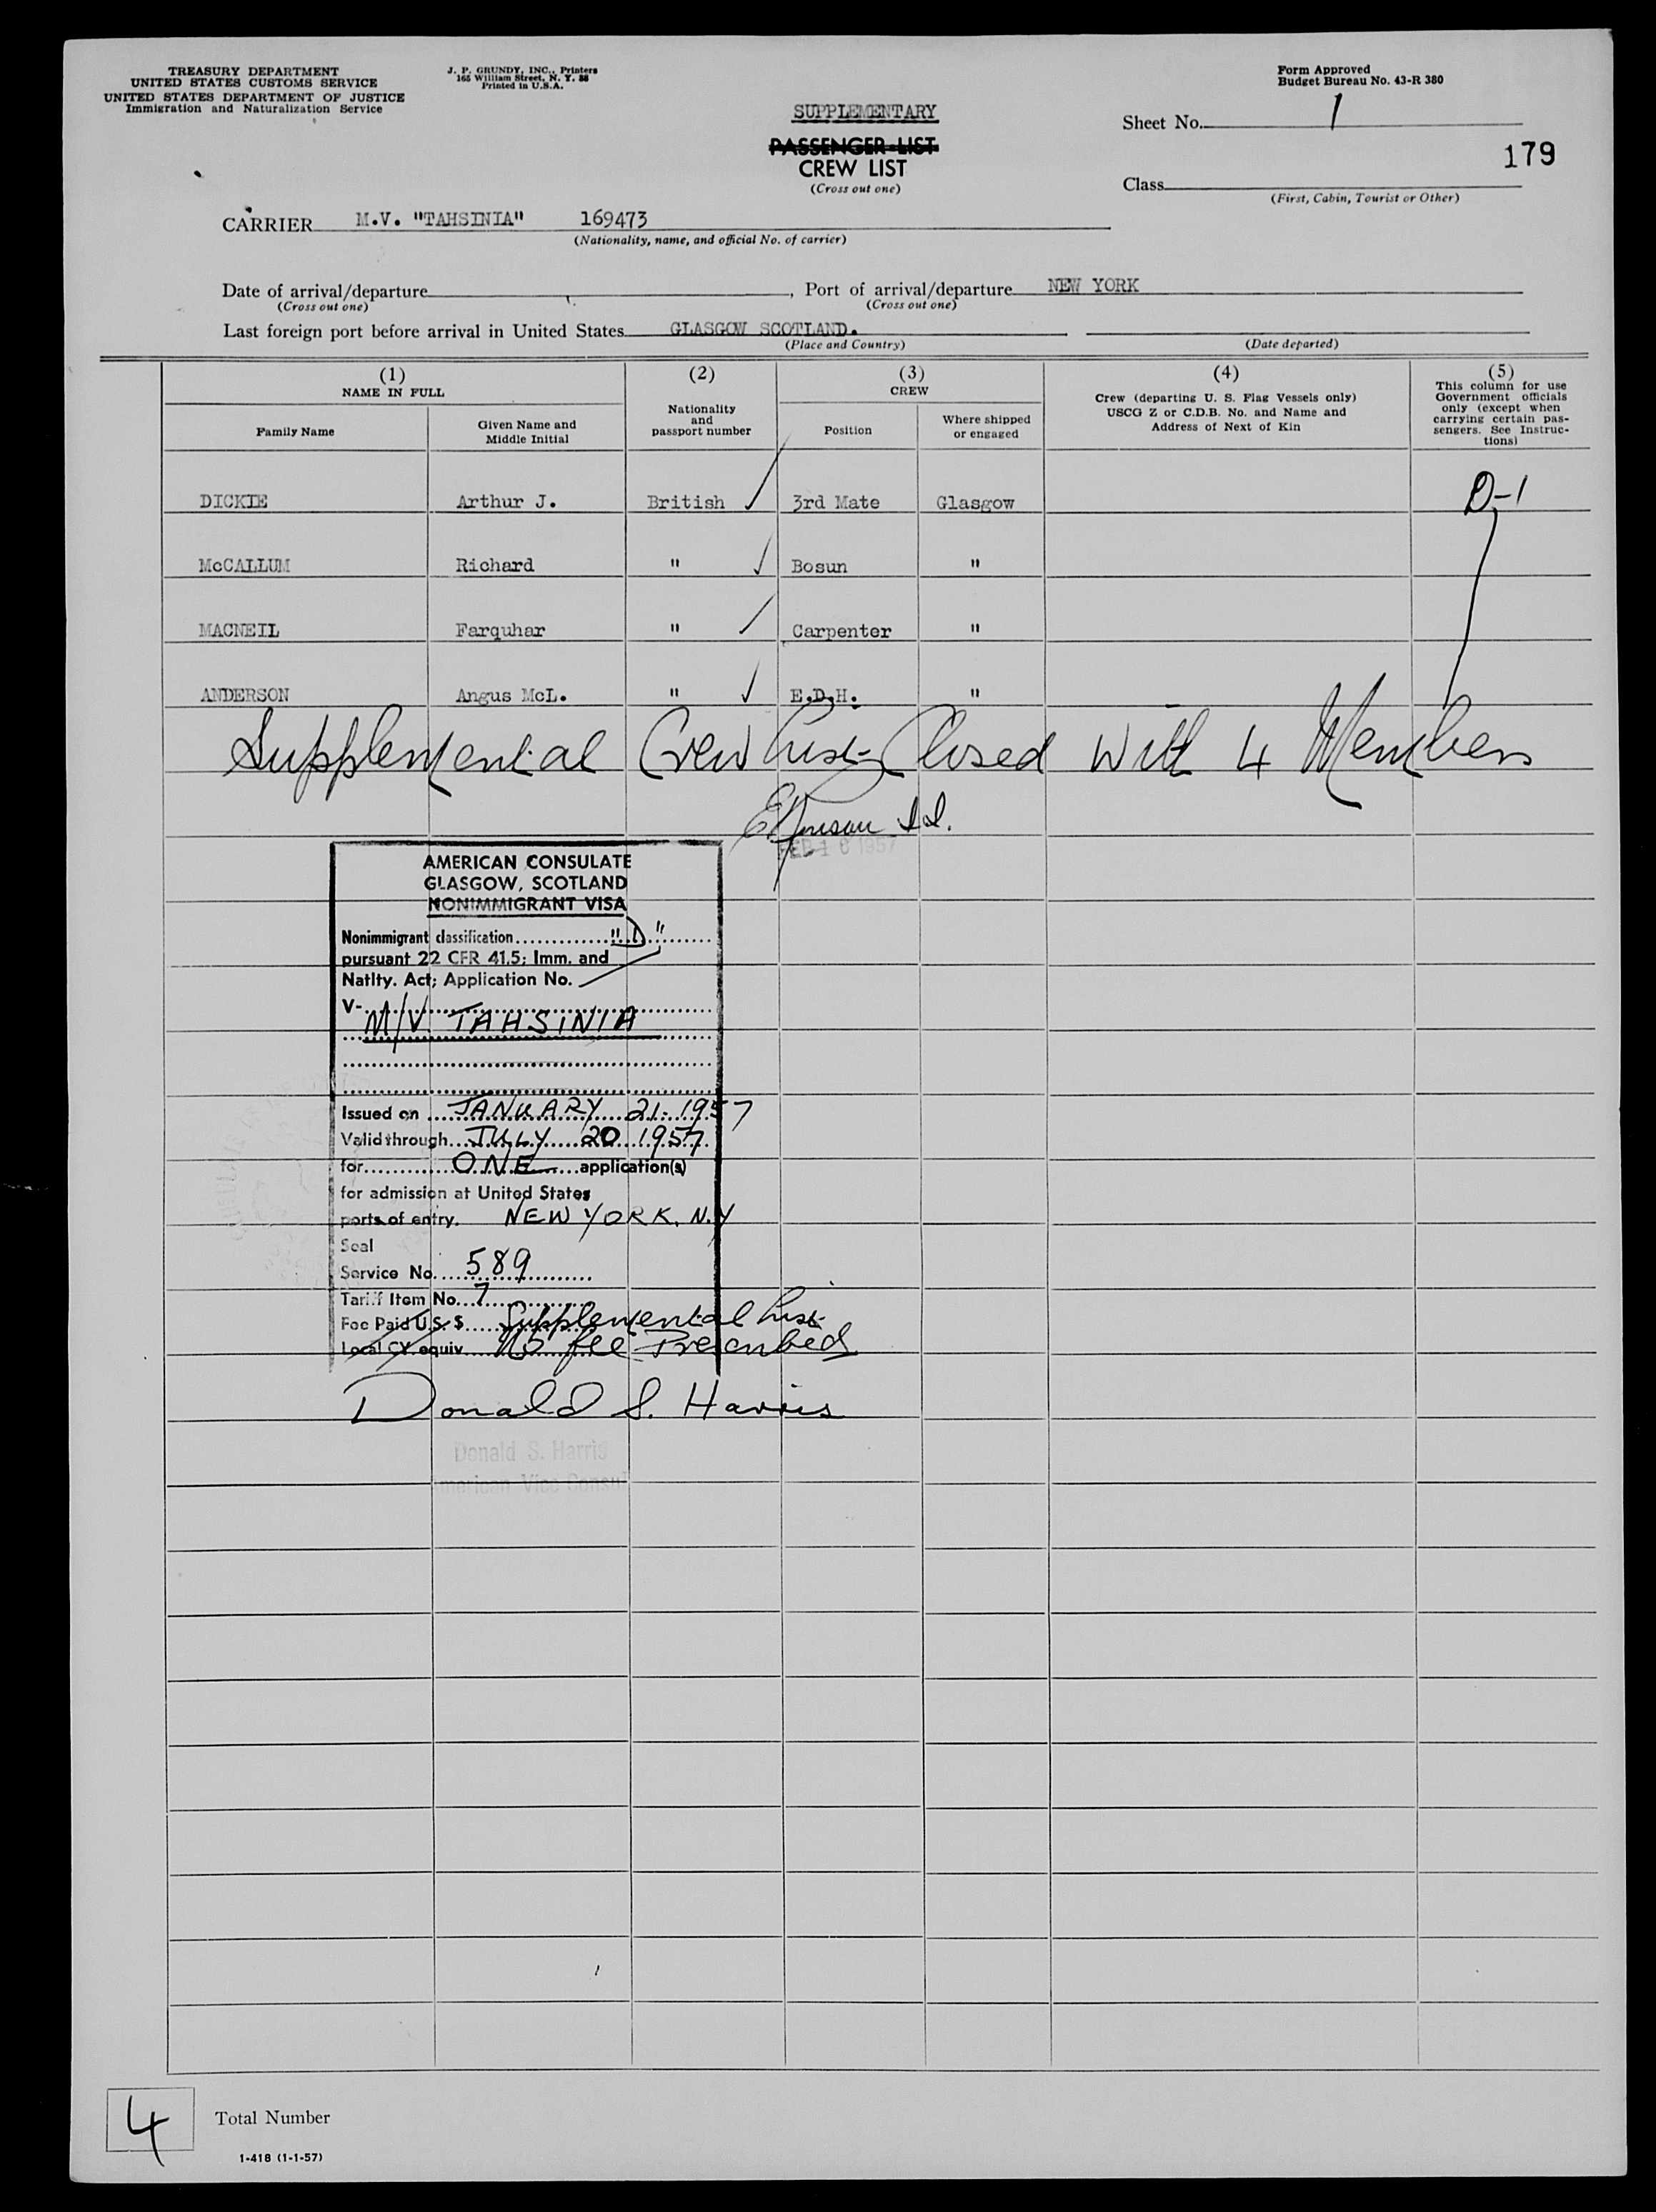 TREASURY DEPARTMENT
UNITED STATES CUSTOMS SERVICE
UNITED STATES DEPARTMENT OF JUSTICE
Immigration and Naturalization Service
J. P. GRUNDY, INC., Printers
165 William Street, N. Y. 38
Printed in U.S.A.
Form Approved
Budget Bureau No. 43-R 380
SUPPLEMENTARY
PASSENGER LIST
CREW LIST
(Cross out one)
Sheet No. 1
179
Class
(First, Cabin, Tourist or Other)
CARRIER M.V. "TAHSINIA" 169473
(Nationality, name, and official No. of carrier)
Date of arrival/departure , Port of arrival/departure NEW YORK
(Cross out one) (Cross out one)
Last foreign port before arrival in United States GLASGOW SCOTLAND.
(Place and Country) (Date departed)
(1) (2) (3) (4) (5)
NAME IN FULL
Family Name
Given Name and
Middle Initial
Nationality
and
passport number
CREW
Position
Where shipped
or engaged
Crew (departing U. S. Flag Vessels only)
USCG Z or C.D.B. No. and Name and
Address of Next of Kin
This column for use
Government officials
only (except when
carrying certain pas-
sengers. See Instruc-
tions)
DICKIE Arthur J. British 3rd Mate Glasgow D-1
McCALLUM Richard " Bosun "
MACNEIL Farquhar " Carpenter "
ANDERSON Angus McL. " E.D.H. "
Supplemental Crew List Closed with 4 Members
FEB 1 0 1957
AMERICAN CONSULATE
GLASGOW, SCOTLAND
NONIMMIGRANT VISA
Nonimmigrant classification "D"
pursuant 22 CFR 41.5; Imm. and
Natlty. Act; Application No.
V-
M/V TAHSINIA
Issued on JANUARY 21. 1957
Valid through JULY 20 1957
for ONE application(s)
for admission at United States
ports of entry. NEW YORK. N.Y
Seal
Service No. 589
Tariff Item No. 7
Fee Paid U.S. $ Supplemental List
Local CY equiv. No fee Prescribed
Donald S. Harris
Donald S. Harris
American Vice Consul
4 Total Number
1-418 (1-1-57)